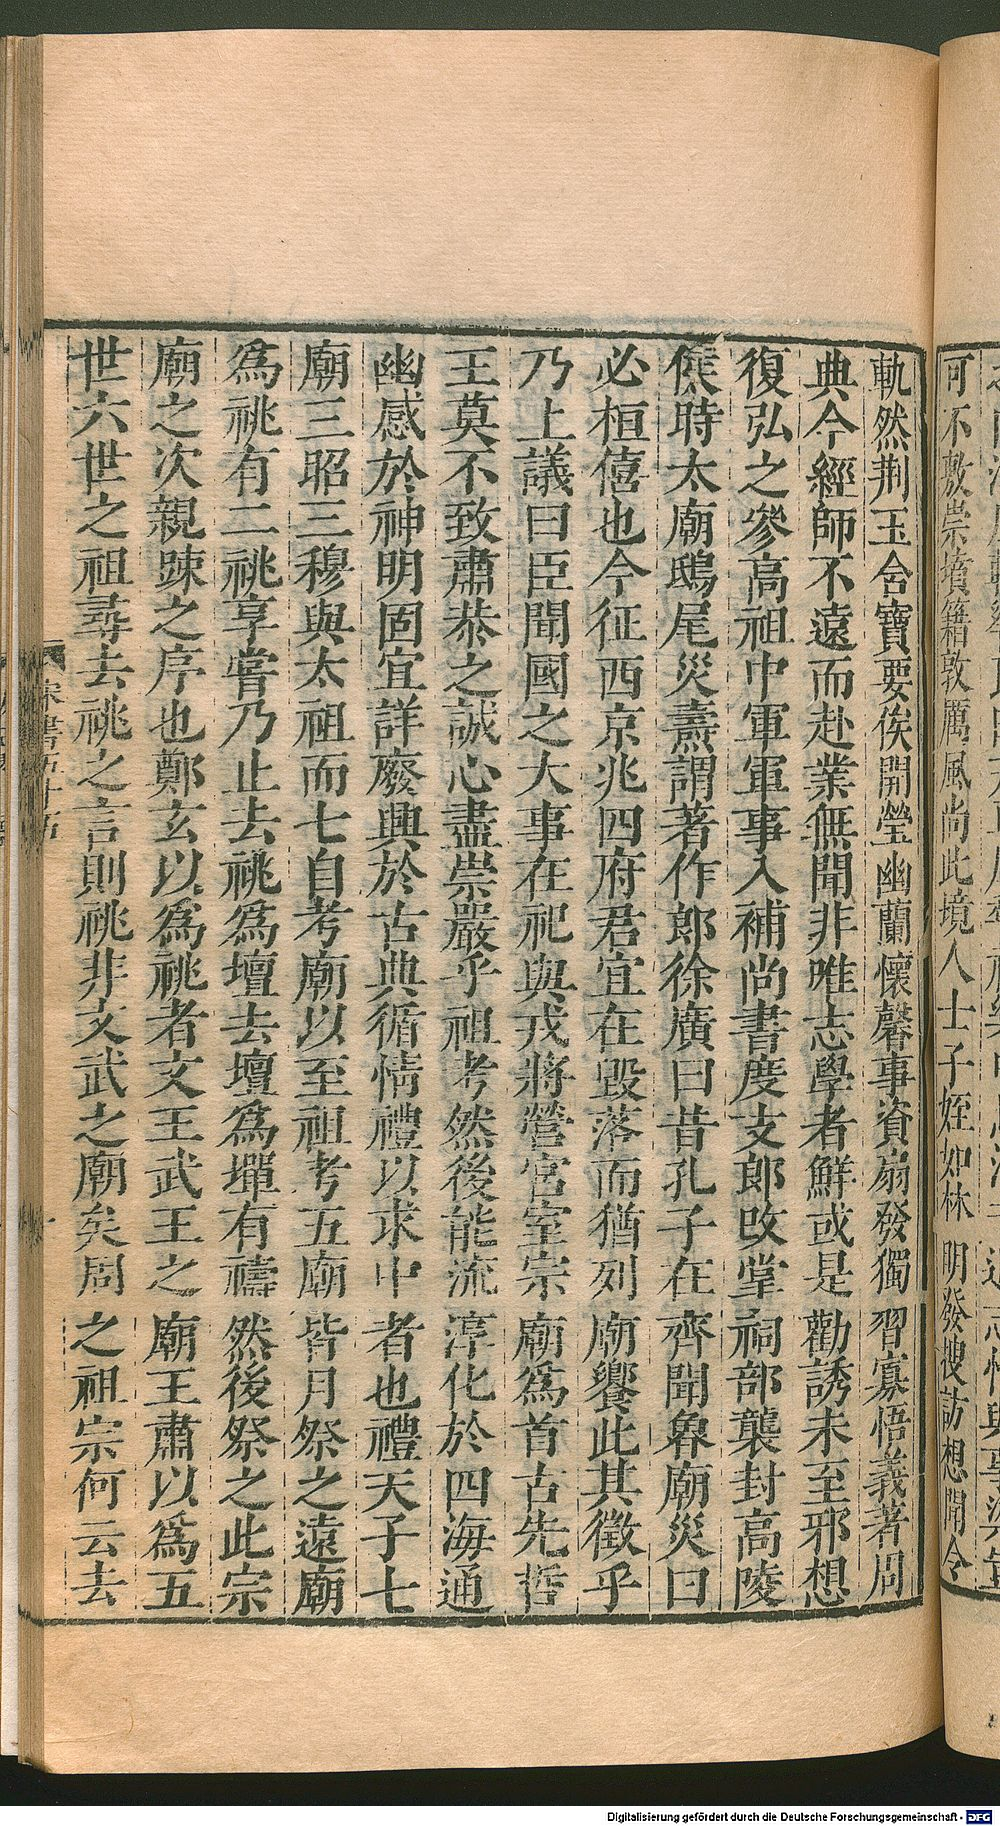 軌然荆玉含寶要俟開瑩幽蘭懷馨事資扇發獨習寡悟義著周
典今經師不遠而赴業無聞非唯志學者鮮或是勸誘未至邪想
復弘之參高祖中軍軍事入補尚書度支郎改掌祠部襲封高陵
侯時太廟鴟尾災燾謂著作郎徐廣曰昔孔子在齊聞魯廟災曰
必桓僖也今征西京兆四府君宜在毀落而猶列廟饗此其徵乎
乃上議曰臣聞國之大事在祀與戎將營宮室宗廟爲首古先哲
王莫不致肅恭之誠心盡崇嚴乎祖考然後能流淳化於四海通
幽感於神明固宜詳廢興於古典循情禮以求中者也禮天子七
廟三昭三穆與太祖而七自考廟以至祖考五廟皆月祭之遠廟
爲祧有二祧享嘗乃止去祧爲壇去壇爲墠有禱然後祭之此宗
廟之次親踈之序也鄭玄以爲祧者文王武王之廟王肅以爲五
世六世之祖尋去祧之言則祧非文武之廟矣周之祖宗何云去
宋書五十五
可不敷崇墳籍敦厲風尚此境人士子姪如林明發搜訪想聞令
Digitalisierung gefördert durch die Deutsche Forschungsgemeinschaft - DFG